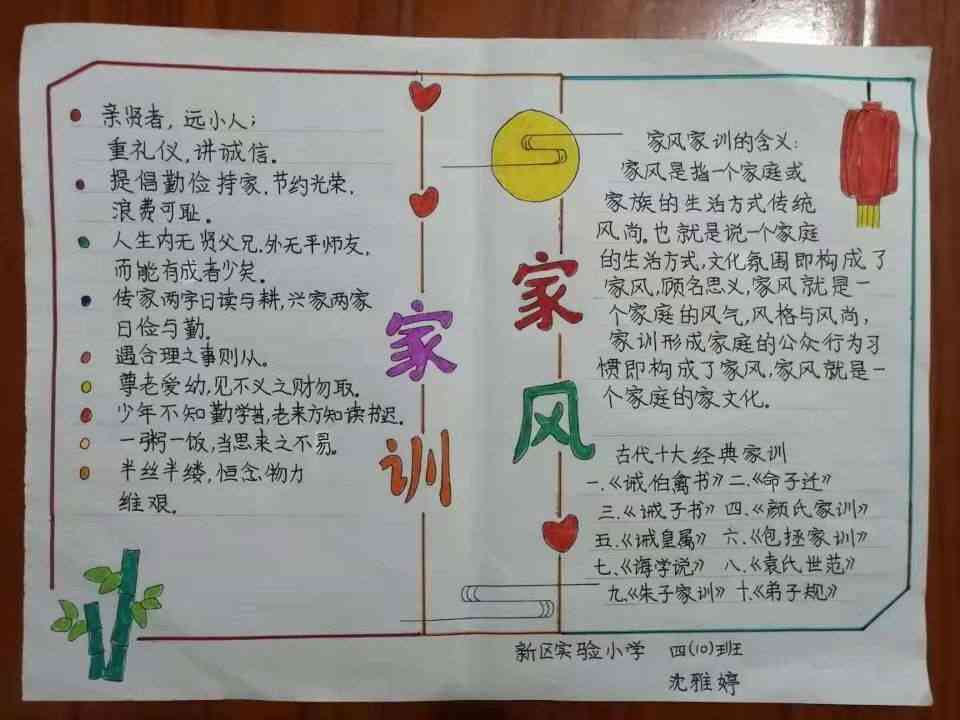 亲贤者，远小人；
重礼仪，讲诚信。
提倡勤俭持家，节约光荣，
浪费可耻。
人生内无贤父兄，外无平师友，
而能有成者少矣。
传家两字日读与耕，兴家两家
日俭与勤。
遇合理之事则从。
尊老爱幼，见不义之财勿取。
少年不知勤学苦，老来方知读书迟。
一粥一饭，当思来之不易。
半丝半缕，恒念物力
维艰。
家训
家风
家风家训的含义：
家风是指一个家庭或
家族的生活方式传统
风尚。也就是说一个家庭
的生活方式，文化氛围即构成了
家风，顾名思义，家风就是一
个家庭的风气，风格与风尚，
家训形成家庭的公众行为习
惯即构成了家风，家风就是一
个家庭的家文化。
古代十大经典家训
一.《诫伯禽书》二.《命子迁》
三.《诫子书》四.《颜氏家训》
五.《诫皇属》六.《包拯家训》
七.《诲学说》八.《袁氏世范》
九.《朱子家训》十.《弟子规》
新区实验小学 四(10)班
沈雅婷